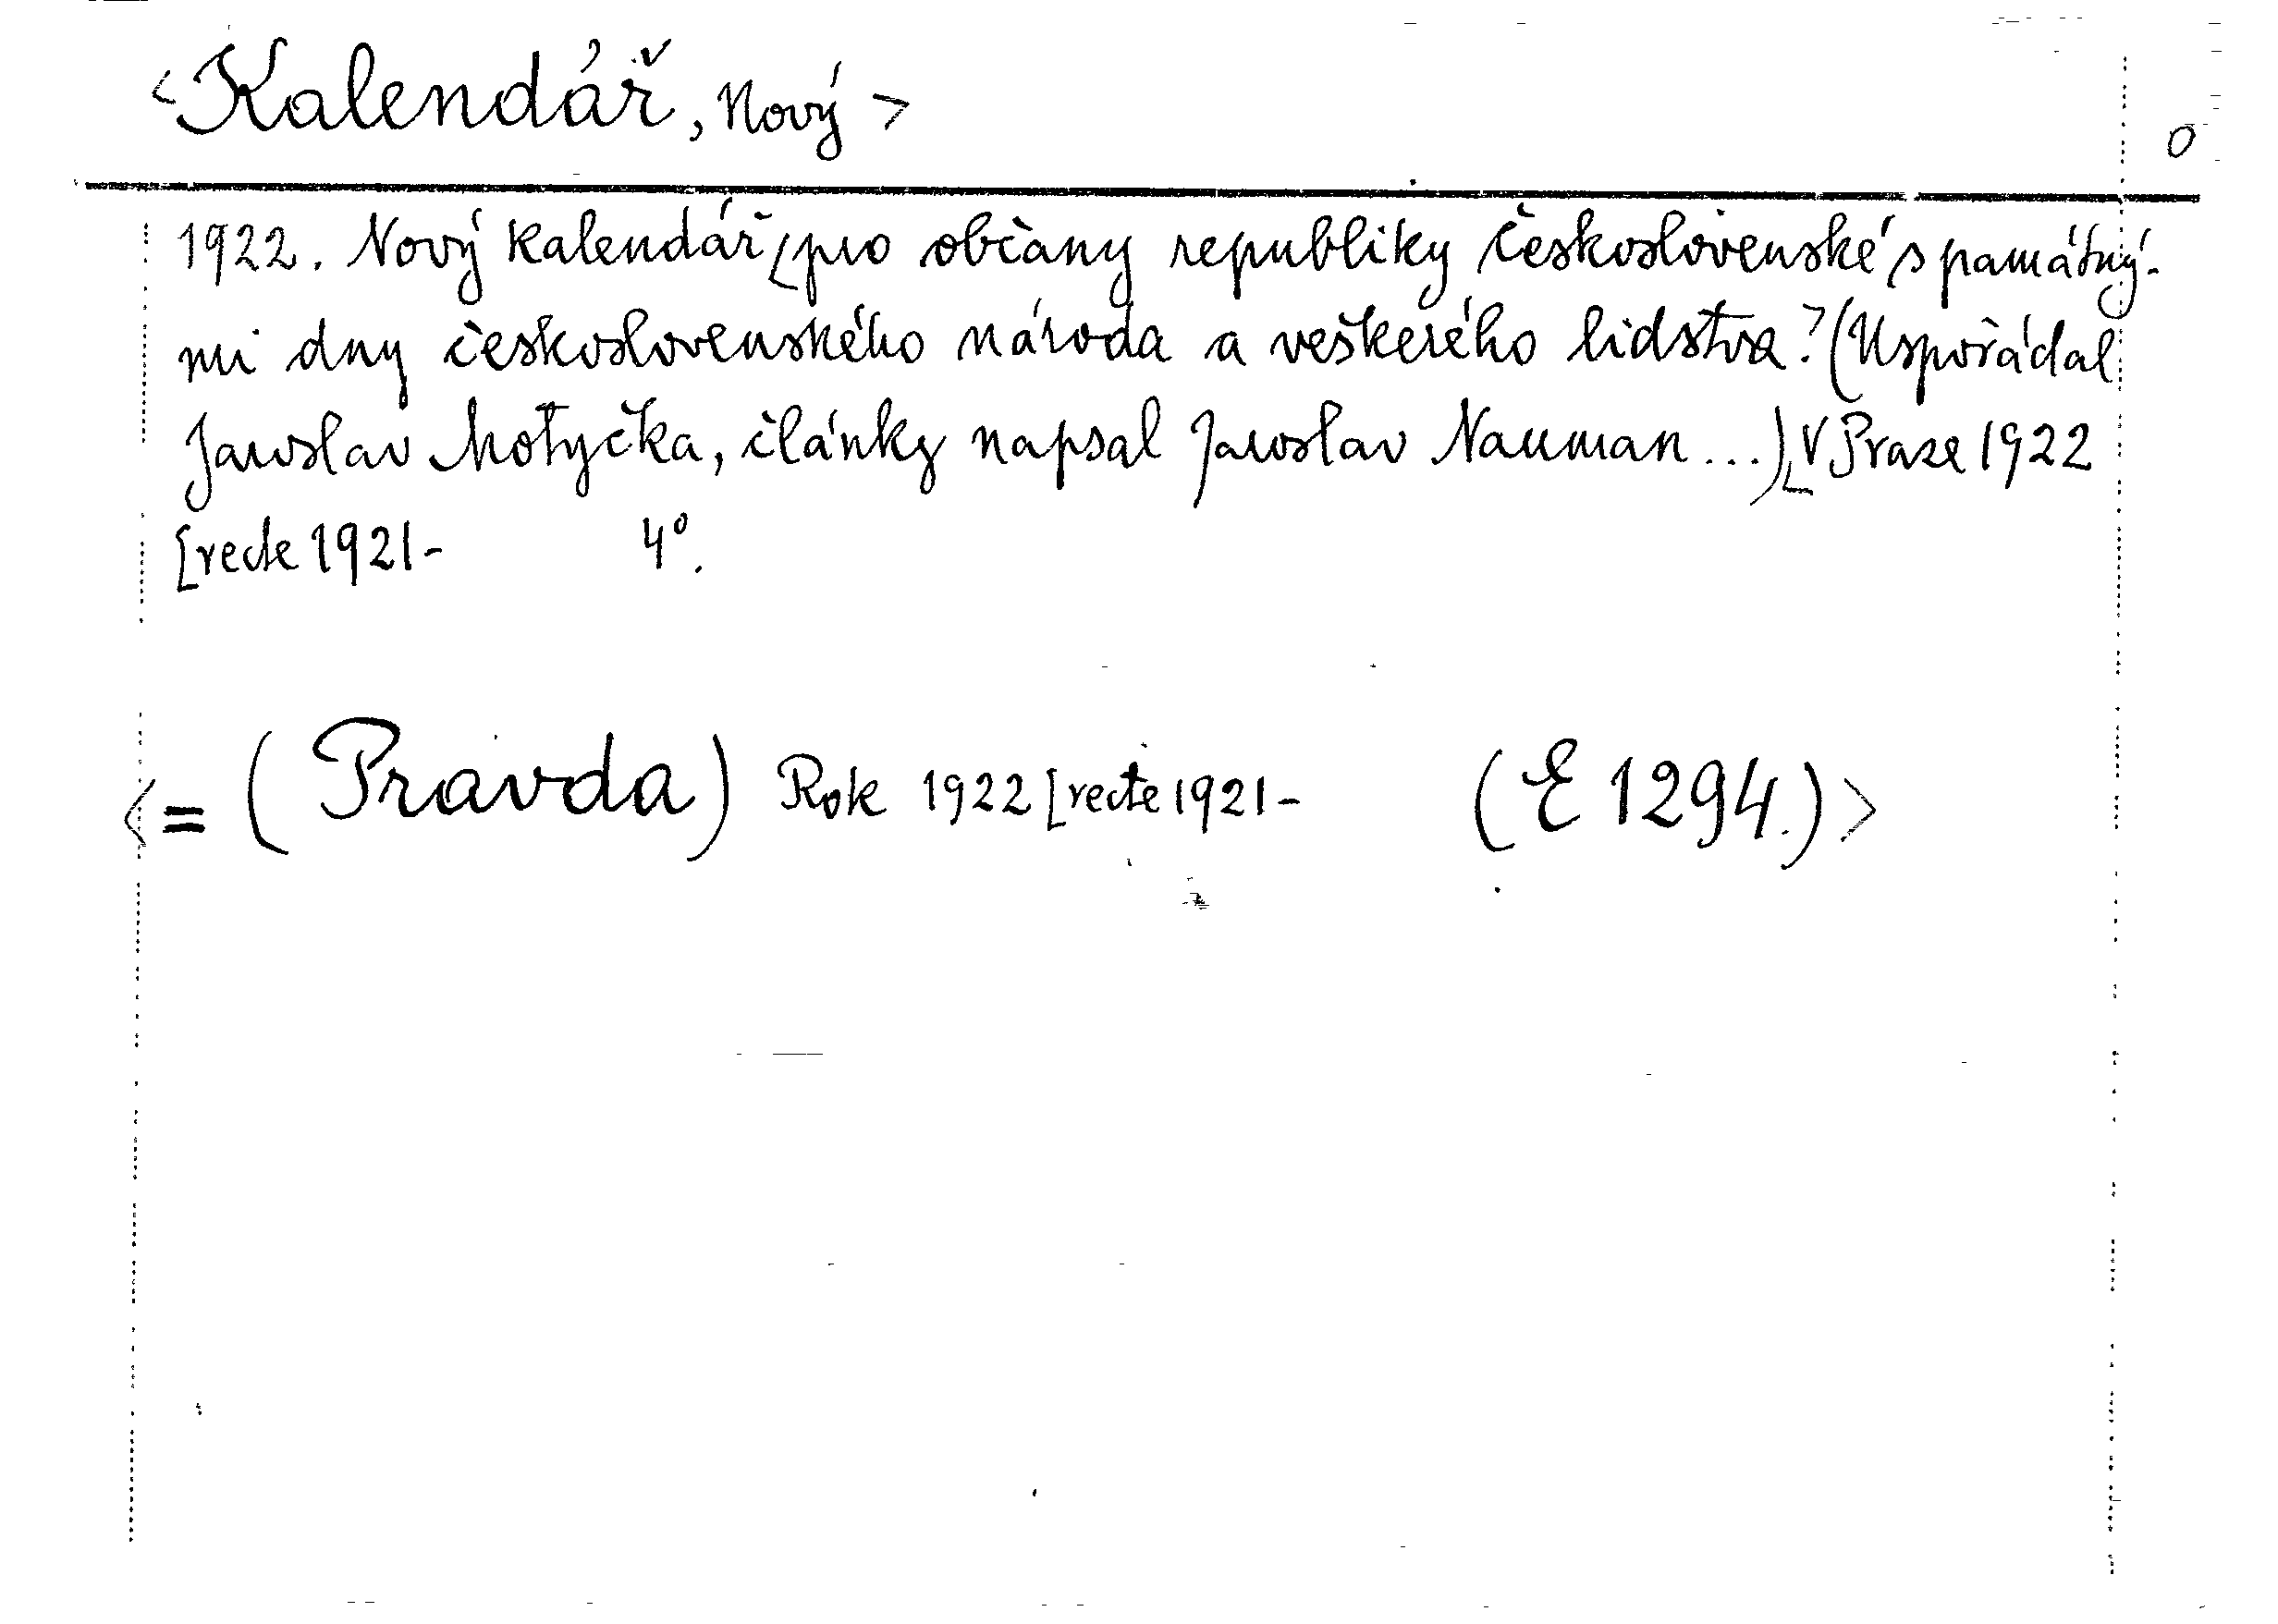 <Kalendář, Nový>
0
1922. Nový kalendář pro občany republiky československé s památný-
mi dny československého národa a veškerého lidstva? (Uspořádal
Jaroslav Motyčka, články napsal Jaroslav Nauman ...) V Praze 1922
[recte 1921- 4°.
<= (Pravda) Rok 1922 [recte 1921- (E 1294.)>